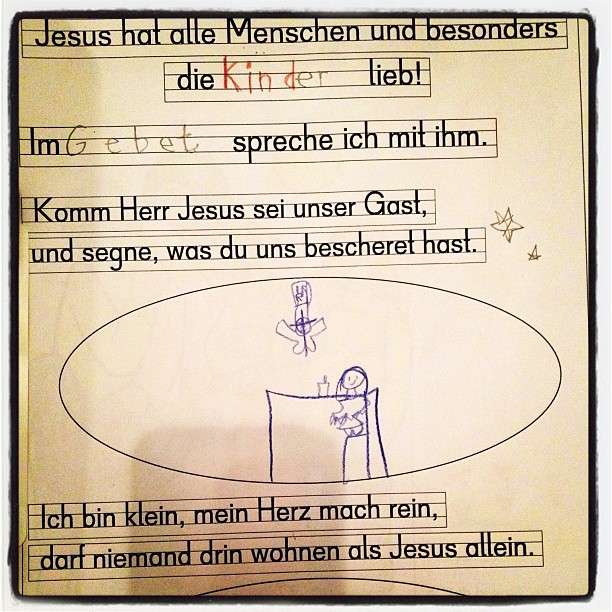 Jesus hat alle Menschen und besonders
die Kinder lieb!
Im Gebet spreche ich mit ihm.
Komm Herr Jesus sei unser Gast,
und segne, was du uns bescheret hast.
Ich bin klein, mein Herz mach rein,
darf niemand drin wohnen als Jesus allein.